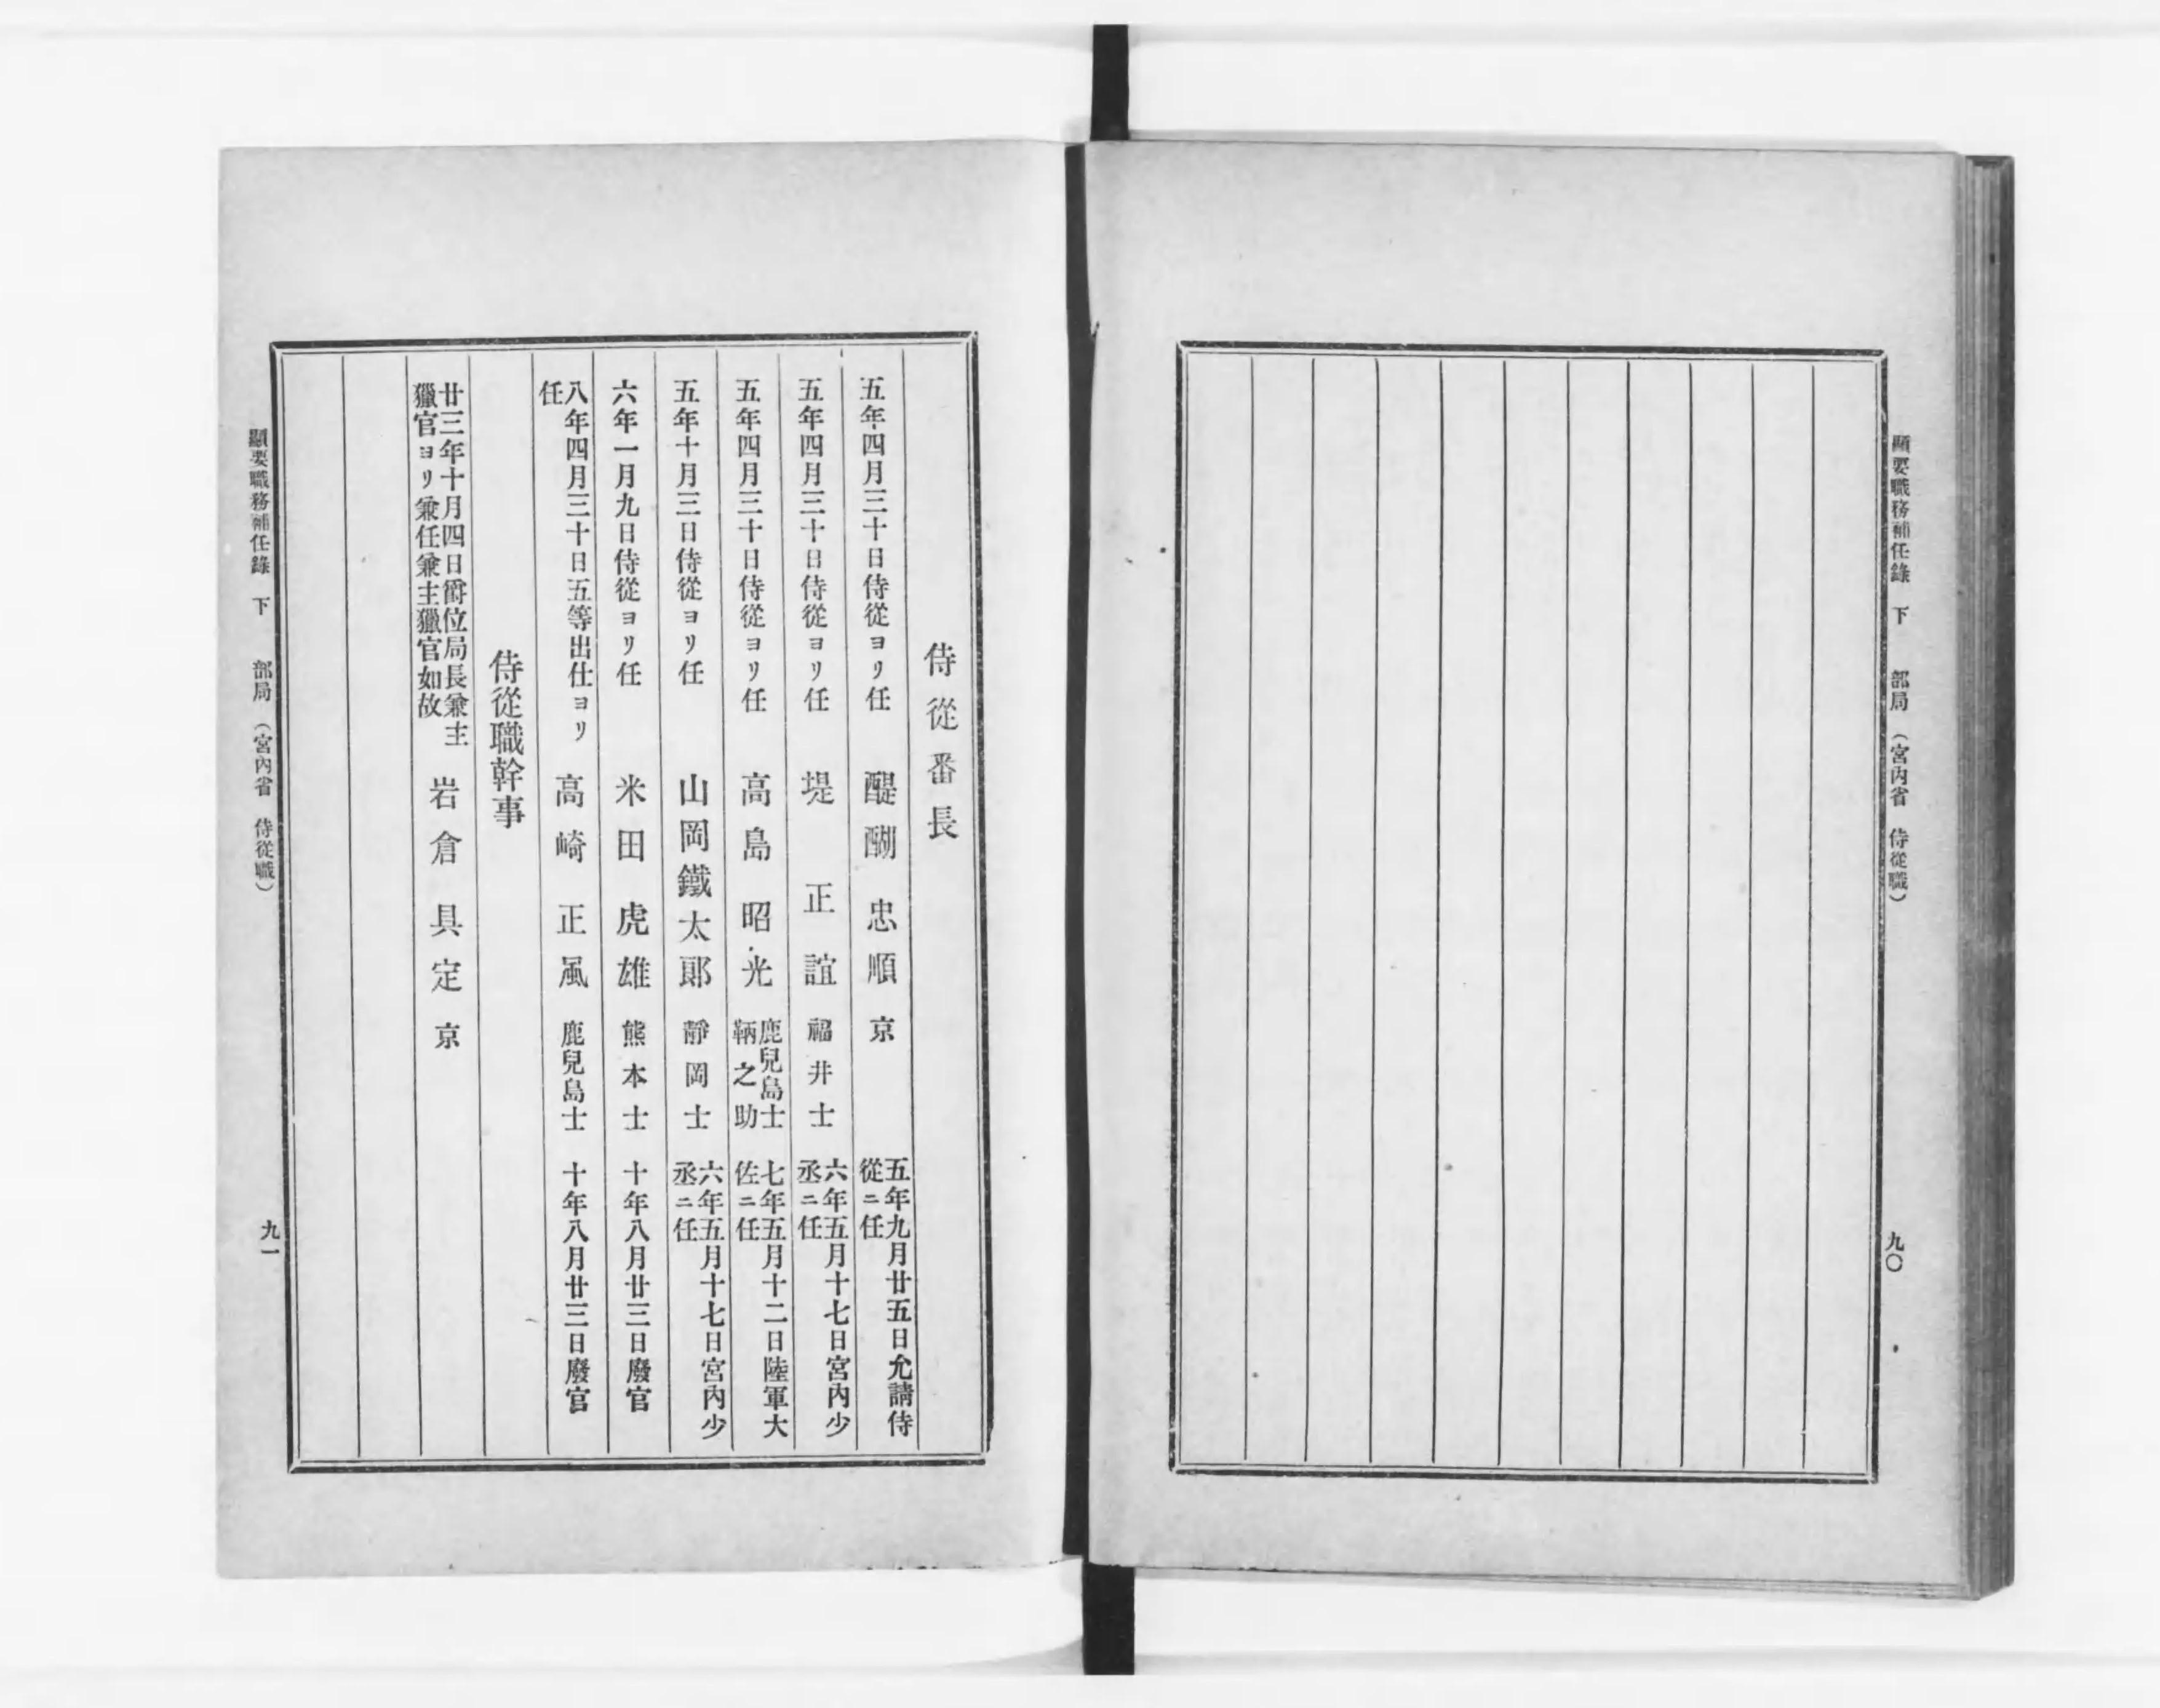 顯要職務補任錄　下　　部局　（宮內省　侍從職）
九〇
侍從番長
五年四月三十日侍從ヨリ任　醍醐忠順　京　五年九月廿五日允請侍
從ニ任
五年四月三十日侍從ヨリ任　堤　正誼　福井士　六年五月十七日宮內少
丞ニ任
五年四月三十日侍從ヨリ任　高島昭光　鹿兒島士
鞆之助　七年五月十二日陸軍大
佐ニ任
五年十月三日侍從ヨリ任　山岡鐵太郞　靜岡士　六年五月十七日宮內少
丞ニ任
六年一月九日侍從ヨリ任　米田虎雄　熊本士　十年八月廿三日廢官
八年四月三十日五等出仕ヨリ
任　高崎正風　鹿兒島士　十年八月廿三日廢官
侍從職幹事
廿三年十月四日爵位局長兼主
獵官ヨリ兼任兼主獵官如故　岩倉具定　京
顯要職務補任錄　下　　部局　（宮內省　侍從職）
九一